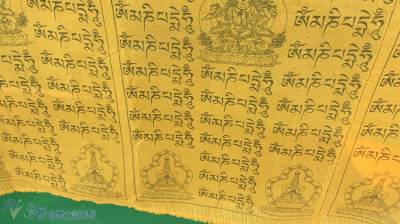 ཨོཾ་མ་ཎི་པདྨེ་ཧཱུྃ
ཨོཾ་མ་ཎི་པདྨེ་ཧཱུྃ
ཨོཾ་མ་ཎི་པདྨེ་ཧཱུྃ
ཨོཾ་མ་ཎི་པདྨེ་ཧཱུྃ
ཨོཾ་མ་ཎི་པདྨེ་ཧཱུྃ
ཨོཾ་མ་ཎི་པདྨེ་ཧཱུྃ
ཨོཾ་མ་ཎི་པདྨེ་ཧཱུྃ
ཨོཾ་མ་ཎི་པདྨེ་ཧཱུྃ
ཨོཾ་མ་ཎི་པདྨེ་ཧཱུྃ
ཨོཾ་མ་ཎི་པདྨེ་ཧཱུྃ
ཨོཾ་མ་ཎི་པདྨེ་ཧཱུྃ
ཨོཾ་མ་ཎི་པདྨེ་ཧཱུྃ
ཨོཾ་མ་ཎི་པདྨེ་ཧཱུྃ
ཨོཾ་མ་ཎི་པདྨེ་ཧཱུྃ
ཨོཾ་མ་ཎི་པདྨེ་ཧཱུྃ
ཨོཾ་མ་ཎི་པདྨེ་ཧཱུྃ
ཨོཾ་མ་ཎི་པདྨེ་ཧཱུྃ
ཨོཾ་མ་ཎི་པདྨེ་ཧཱུྃ
ཨོཾ་མ་ཎི་པདྨེ་ཧཱུྃ
ཨོཾ་མ་ཎི་པདྨེ་ཧཱུྃ
ཨོཾ་མ་ཎི་པདྨེ་ཧཱུྃ
ཨོཾ་མ་ཎི་པདྨེ་ཧཱུྃ
ཨོཾ་མ་ཎི་པདྨེ་ཧཱུྃ
ཨོཾ་མ་ཎི་པདྨེ་ཧཱུྃ
ཨོཾ་མ་ཎི་པདྨེ་ཧཱུྃ
ཨོཾ་མ་ཎི་པདྨེ་ཧཱུྃ
ཨོཾ་མ་ཎི་པདྨེ་ཧཱུྃ